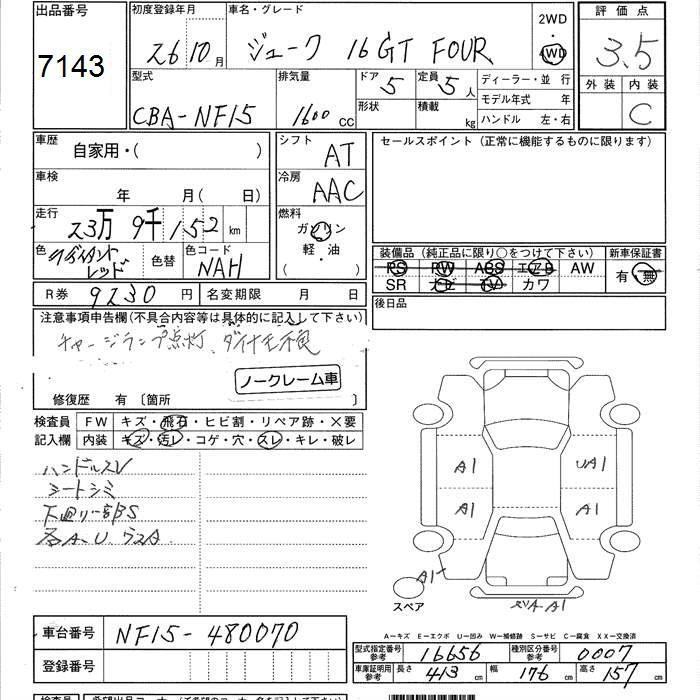 出品番号
7143
初度登録年月
26 10月
車名・グレード
ジューク 16GT FOUR
2WD
4WD
評価点
3.5
外装 内装
C
型式
CBA-NF15
排気量
1600 cc
ドア 5
形状
定員 5人
積載 kg
ディーラー・並 行
モデル年式 年
ハンドル 左・右
車歴
自家用・( )
シフト
AT
セールスポイント (正常に機能するものに限ります)
車検
年 月( 日)
冷房
AAC
走行
23万 9千152 km
燃料
ガソリン
軽・油
( )
色
ラディアント
レッド
色替
色コード
NAH
装備品 (純正品に限り○をつけて下さい)
PS PW ABS エアB AW
SR ナビ TV カワ
新車保証書
有・無
R券 9230 円
名変期限 月 日
後日品
注意事項申告欄(不具合内容等は具体的に記入して下さい)
チャージランプ点灯、ダイナモ不良
ノークレーム車
修復歴 有〔箇所 〕
検査員
記入欄
FW キズ・飛石・ヒビ割・リペア跡・×要
内装 キズ・汚レ・コゲ・穴・スレ・キレ・破レ
ハンドルスレ
シートシミ
下廻り一部S
各A・U ウスA
A1 UA1
A1 A1
A1
スペア
A1
車台番号
NF15-480070
登録番号
A－キズ E－エクボ U－凹み W－補修跡 S－サビ C－腐食 XX－交換済
型式指定番号
参考
16656
種別区分番号
参考
0007
車庫証明用
参考
長さ 413 cm
幅 176 cm
高さ 157 cm